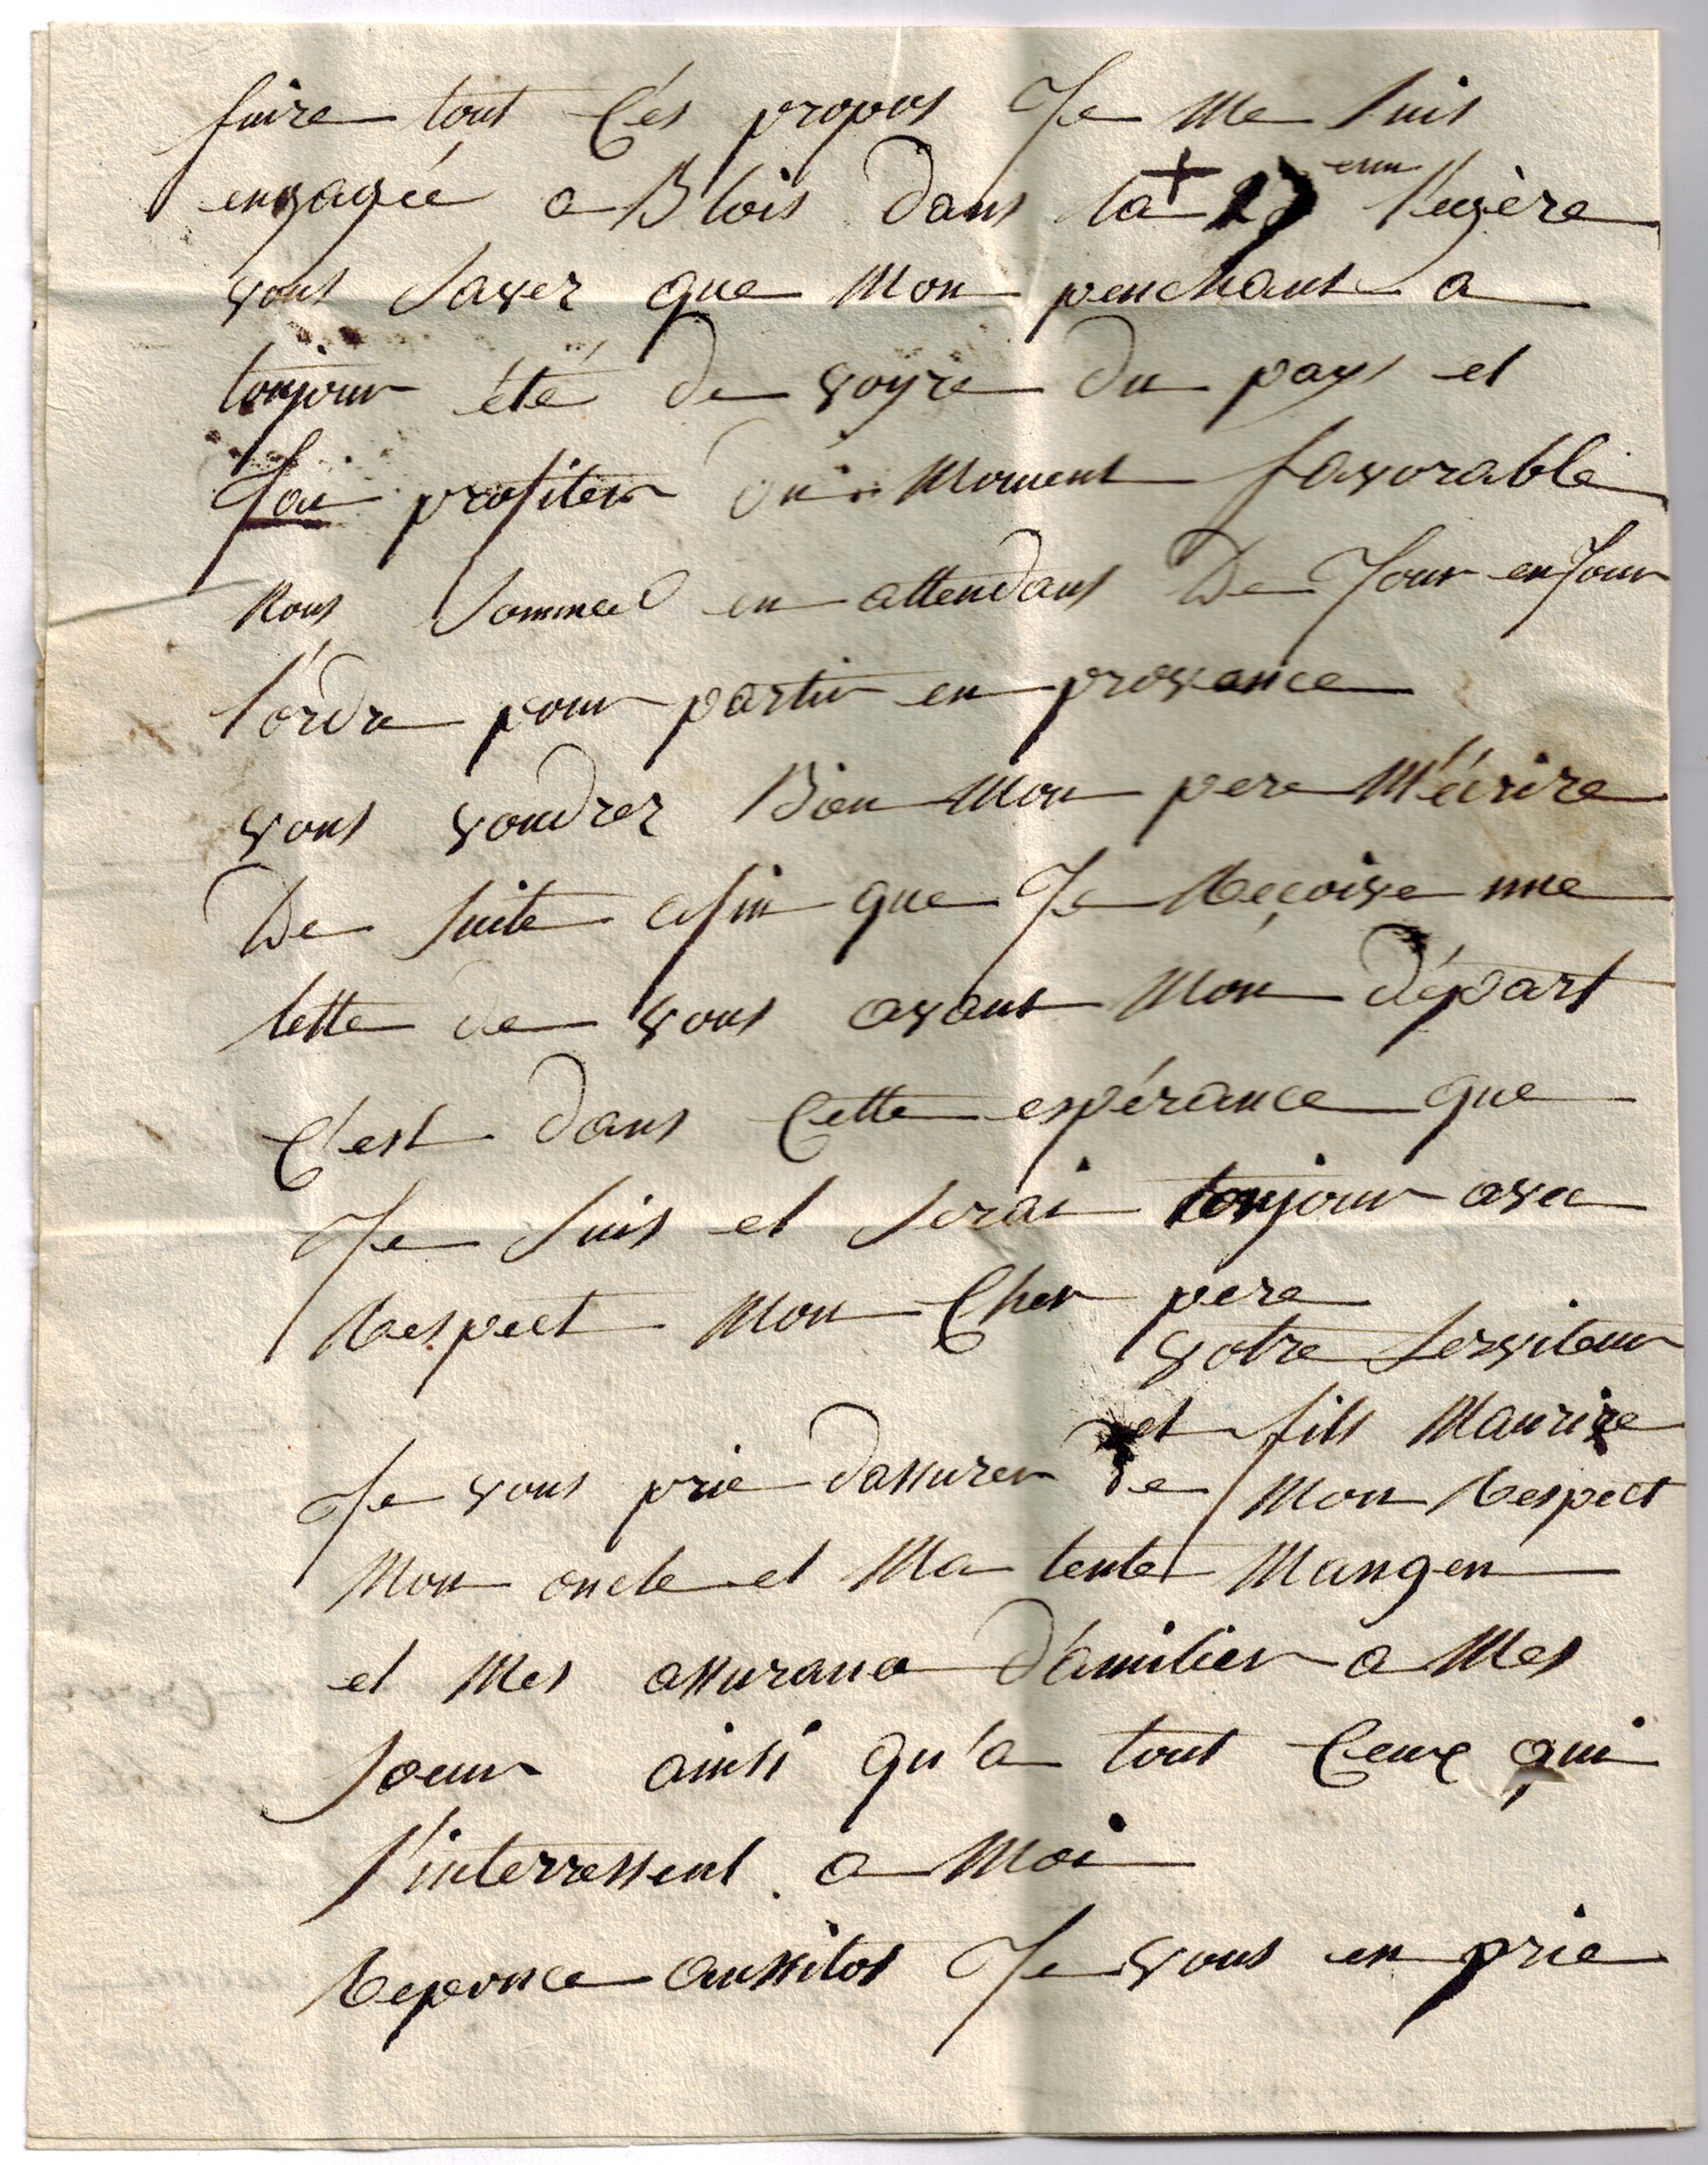 fuire tout Cés propos Je me suis
engagée a Blois dans la + eme l'egère
vous savez que mon penchant a
toujour été de voyre du pays et
J'ai profiter du moment favorable
nous sommes en attendant De Jour en Jour
l'ordre pour partir en provance
vous voudrez Bien mon pere m'écrire
De suite afin que Je Reçoive une
lette de vous avant mon départ
C'est dans Cette espérance que
Je suis et serai toujour avec
Respect mon Cher pere
votre serviteur
et fils Maurice
Je vous prie dassurer de mon Respect
mon oncle et Ma tente Mangen
et mes assurance d'amitier a mes
soeur ainsi qu'a tout Ceux qui
s'interressent a moi
Reponce aussitot Je vous en prie